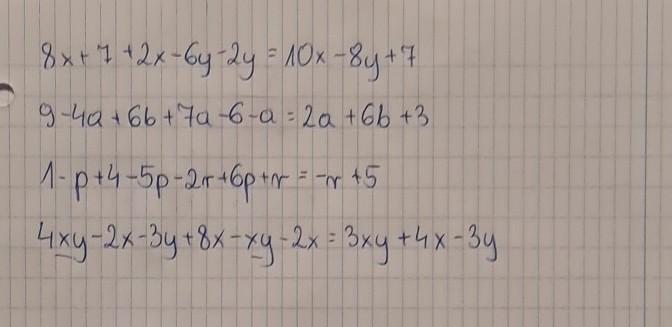 8x+7+2x-6y-2y=10x-8y+7
9-4a+6b+7a-6-a=2a+6b+3
1-p+4-5p-2r+6p+r=-r+5
4xy-2x-3y+8x-xy-2x=3xy+4x-3y